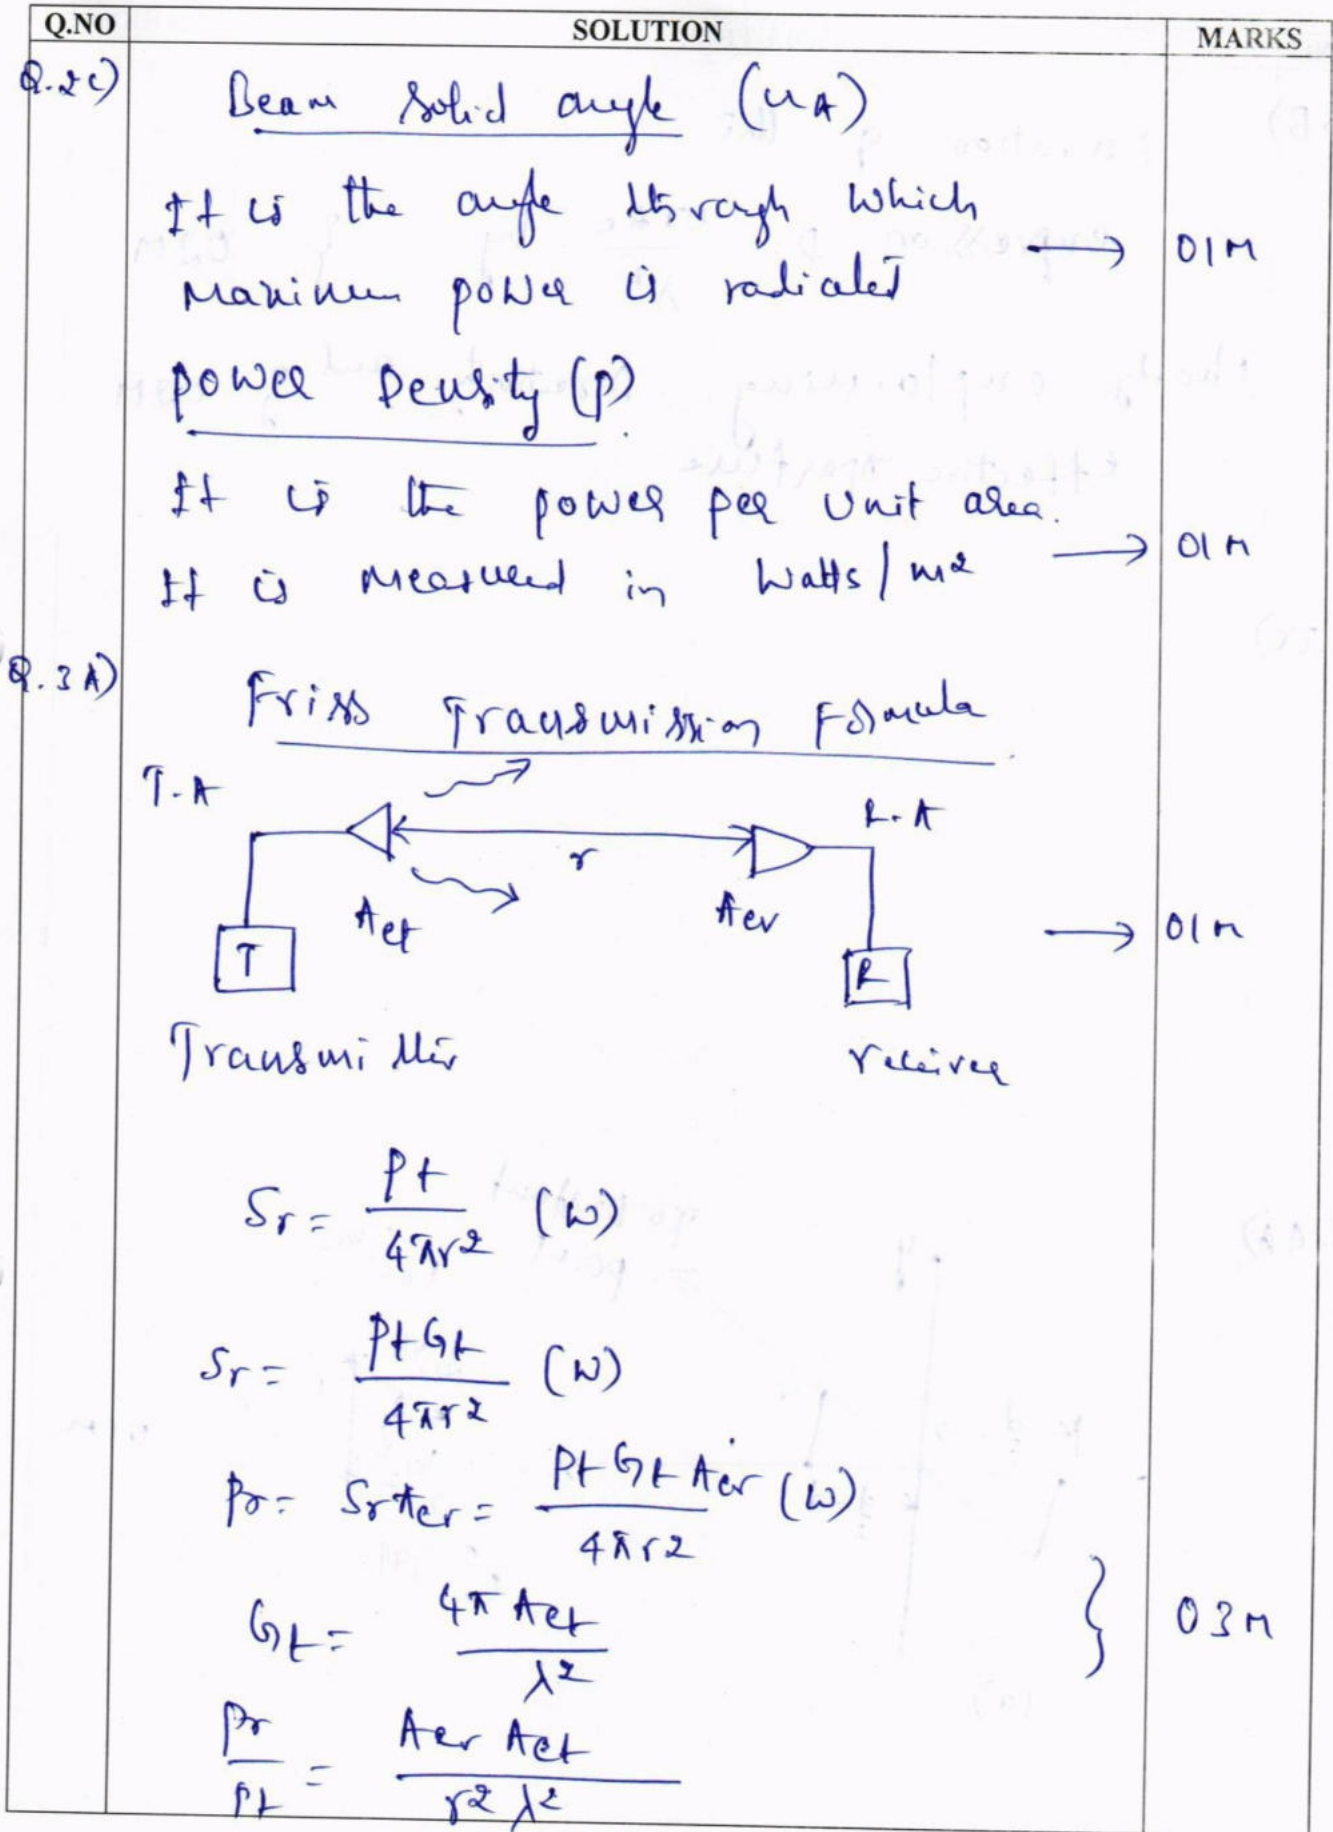 Q.NO SOLUTION MARKS
Q.2c) Beam solid angle (ΩA)
It is the angle through which
maximum power is radiated → 01M
power Density (p)
It is the power per unit area.
It is measured in Watts/m² → 01M
Q.3A) Friss Transmission Formula
T.A
R.A
r
Aet Aer → 01M
T R
Transmitter receiver
Sr = Pt / 4πr² (W)
Sr = PtGt / 4πr² (W)
Pr = SrAer = PtGtAer / 4πr² (W)
Gt = 4πAet / λ² } 03M
Pr / Pt = Aer Aet / r²λ²